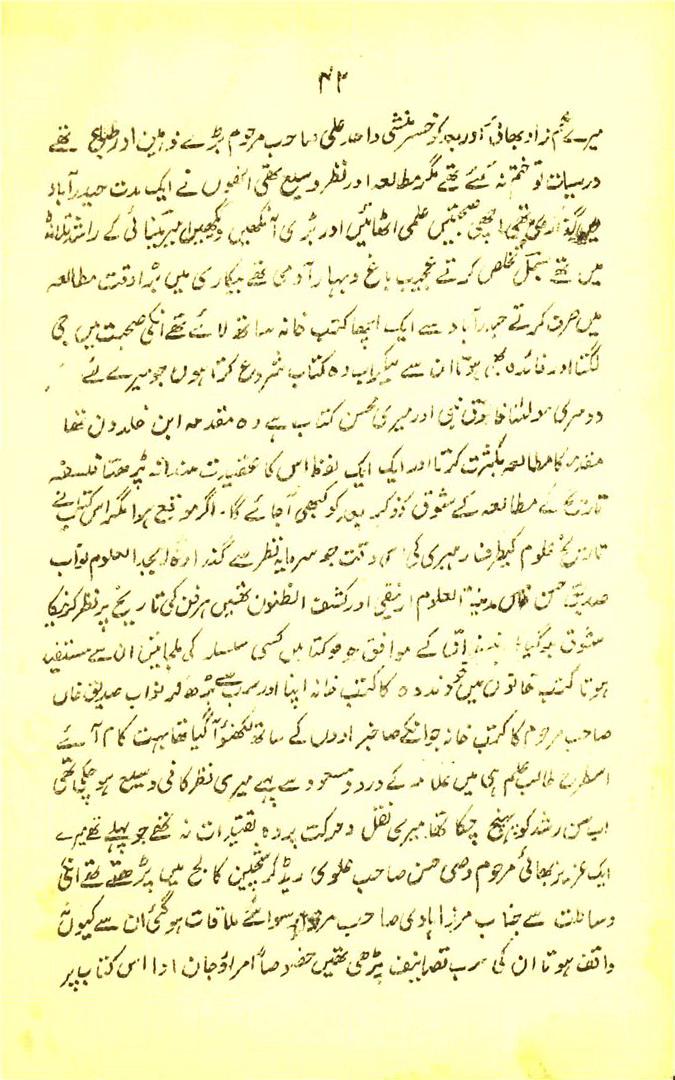 ۴۳
میرے عم زاد بھائی اور بہو کے خسر منشی واحد علی صاحب مرحوم بڑے ذہین اور طباع تھے
درسیات تو ختم نہ کئے تھے مگر مطالعہ اور نظر وسیع تھی انھوں نے ایک مدت حیدرآباد
میں گذاری تھی اچھی صحبتیں علمی اٹھائیں اور بڑی آنکھیں دیکھیں امیر مینائی کے راشد تلامذہ
میں تھے تخلص کرتے عجیب باغ و بہار آدمی تھے بیکاری میں بڑا وقت مطالعہ
میں صرف کرتے حیدرآباد سے ایک اچھا کتب خانہ ساتھ لائے تھے انکی صحبت میں جی
لگتا اور فائدہ بھی ہوتا ان سے لیکر اب وہ کتاب شروع کرتا ہوں جو میرے لئے
دوسری اور میری محسن کتاب ہے وہ مقدمہ ابن خلدون تھا
مقدمہ کا مطالعہ بکثرت کرتا اور ایک ایک لفظ اس کا عقیدت مندانہ پڑھتا فلسفہ
تاریخ کے مطالعہ کے شوق کو ذکر یوں تو کبھی آجائے گا۔ اگر موقع ہوا مگر اس کتاب نے
تاریخ علوم کیطرف رہبری کی اس وقت جو سرمایہ نظر سے گذرا وہ ابجد العلوم نواب
صدیق حسن خاں مدینۃ العلوم ارنیقی اور کشف الظنون تھیں ہر فن کی تاریخ پر نظر کرنیکا
شوق ہوگیا اپنے مذاق کے موافق جو جو کتابیں کسی سلسلہ کی ملجاتیں ان سے مستفید
ہوتا کتب خانوں میں خود ندوہ کا کتب خانہ اپنا اور سب سے بڑھ کر نواب صدیق خاں
صاحب مرحوم کا کتب خانہ جو انکے صاحبزادوں کے ساتھ لکھنؤ آگیا تھا بہت کام آئے
اسطرح طالب علمی ہی میں علامہ کے درود مسعود سے پہلے میری نظر کافی وسیع ہو چکی تھی
اب سن رشد کو پہنچ چکا تھا میری نقل و حرکت پر وہ تقیدات نہ تھے جو پہلے تھے میرے
ایک عزیز بھائی مرحوم وصی حسن صاحب علوی ریڈ کرسچین کالج میں پڑھتے تھے انکی
وساطت سے جناب مرزا ہادی صاحب مرحوم رسوا سے ملاقات ہوگئی ان سے کیوں نہ
واقف ہوتا ان کی سب تصانیف پڑھی تھیں خصوصاً امراؤ جان ادا اس کتاب پر